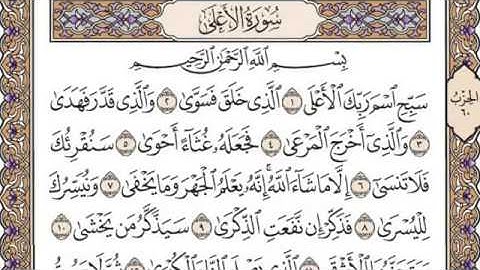 سُورَةُ الأَعْلَىٰ
بِسْمِ ٱللَّهِ ٱلرَّحْمَٰنِ ٱلرَّحِيمِ
سَبِّحِ ٱسْمَ رَبِّكَ ٱلْأَعْلَى ١ ٱلَّذِى خَلَقَ فَسَوَّىٰ ٢ وَٱلَّذِى قَدَّرَ فَهَدَىٰ
٣ وَٱلَّذِىٓ أَخْرَجَ ٱلْمَرْعَىٰ ٤ فَجَعَلَهُۥ غُثَآءً أَحْوَىٰ ٥ سَنُقْرِئُكَ
فَلَا تَنسَىٰٓ ٦ إِلَّا مَا شَآءَ ٱللَّهُ ۚ إِنَّهُۥ يَعْلَمُ ٱلْجَهْرَ وَمَا يَخْفَىٰ ٧ وَنُيَسِّرُكَ
لِلْيُسْرَىٰ ٨ فَذَكِّرْ إِن نَّفَعَتِ ٱلذِّكْرَىٰ ٩ سَيَذَّكَّرُ مَن يَخْشَىٰ ١٠
الحِزْبُ
٦٠